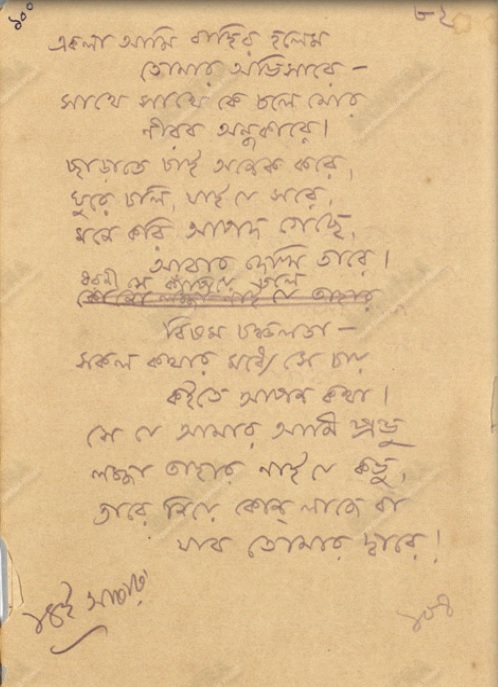 ১০০
৮২
একলা আমি বাহির হলেম
তোমার অভিসারে –
সাথে সাথে কে চলে মোর
নীরব অন্ধকারে।
ছাড়াতে চাই অনেক করে,
ঘুরে চলি, যাই যে সরে,
মনে করি আপদ গেছে,
আবার দেখি তারে।
ধরণী সে কাঁপিয়ে চলে
বিষম চঞ্চলতা –
সকল কথার মধ্যে সে চায়
কইতে আপন কথা।
সে যে আমার আমি প্রভু
লজ্জা তাহার নাই যে কভু,
তারে নিয়ে কোন্ লাজে বা
যাব তোমার দ্বারে!
১৪ই আষাঢ়